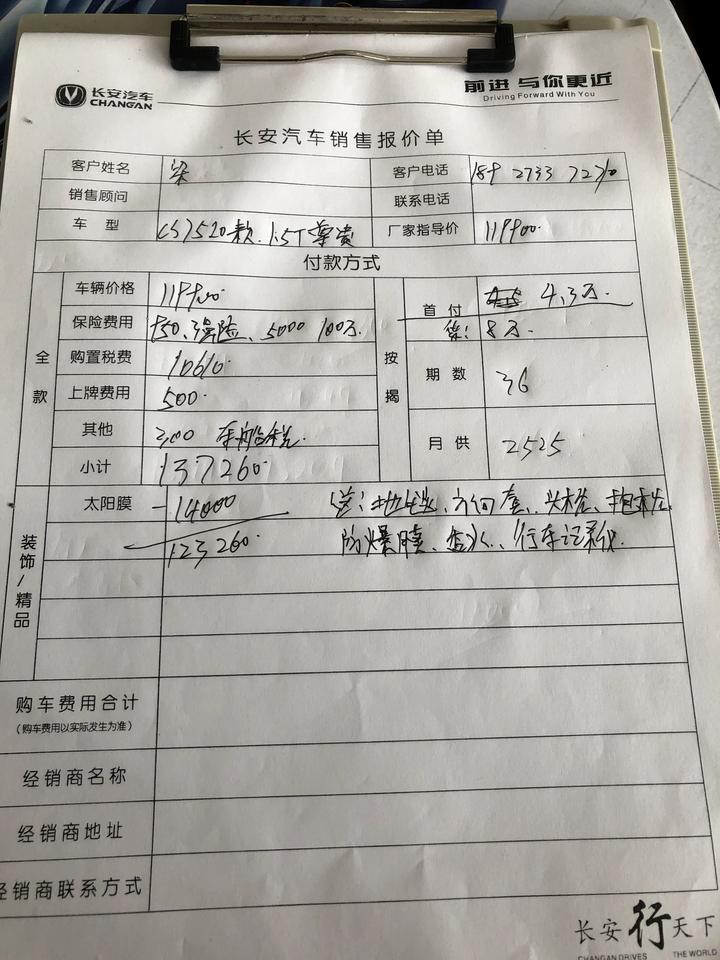 长安汽车
CHANGAN
前进 与你更近
Driving Forward With You
长安汽车销售报价单
客户姓名 梁 客户电话 189 2733 7270
销售顾问 联系电话
车 型 CS75 20款 1.5T 尊贵 厂家指导价 119900.
付款方式
全款
车辆价格 119900
保险费用 950、强险、5000 100万.
购置税费 10610.
上牌费用 500.
其他 300 车船税.
小计 137260.
按揭
首付 4.3万.
贷: 8万.
期数 36
月供 2525
装饰/精品
太阳膜 -14000 送: 地毯、方向套、头枕、抱枕
123260. 防爆膜、 行车记录仪.
购车费用合计
(购车费用以实际发生为准)
经销商名称
经销商地址
经销商联系方式
长安行天下
CHANGAN DRIVES THE WORLD